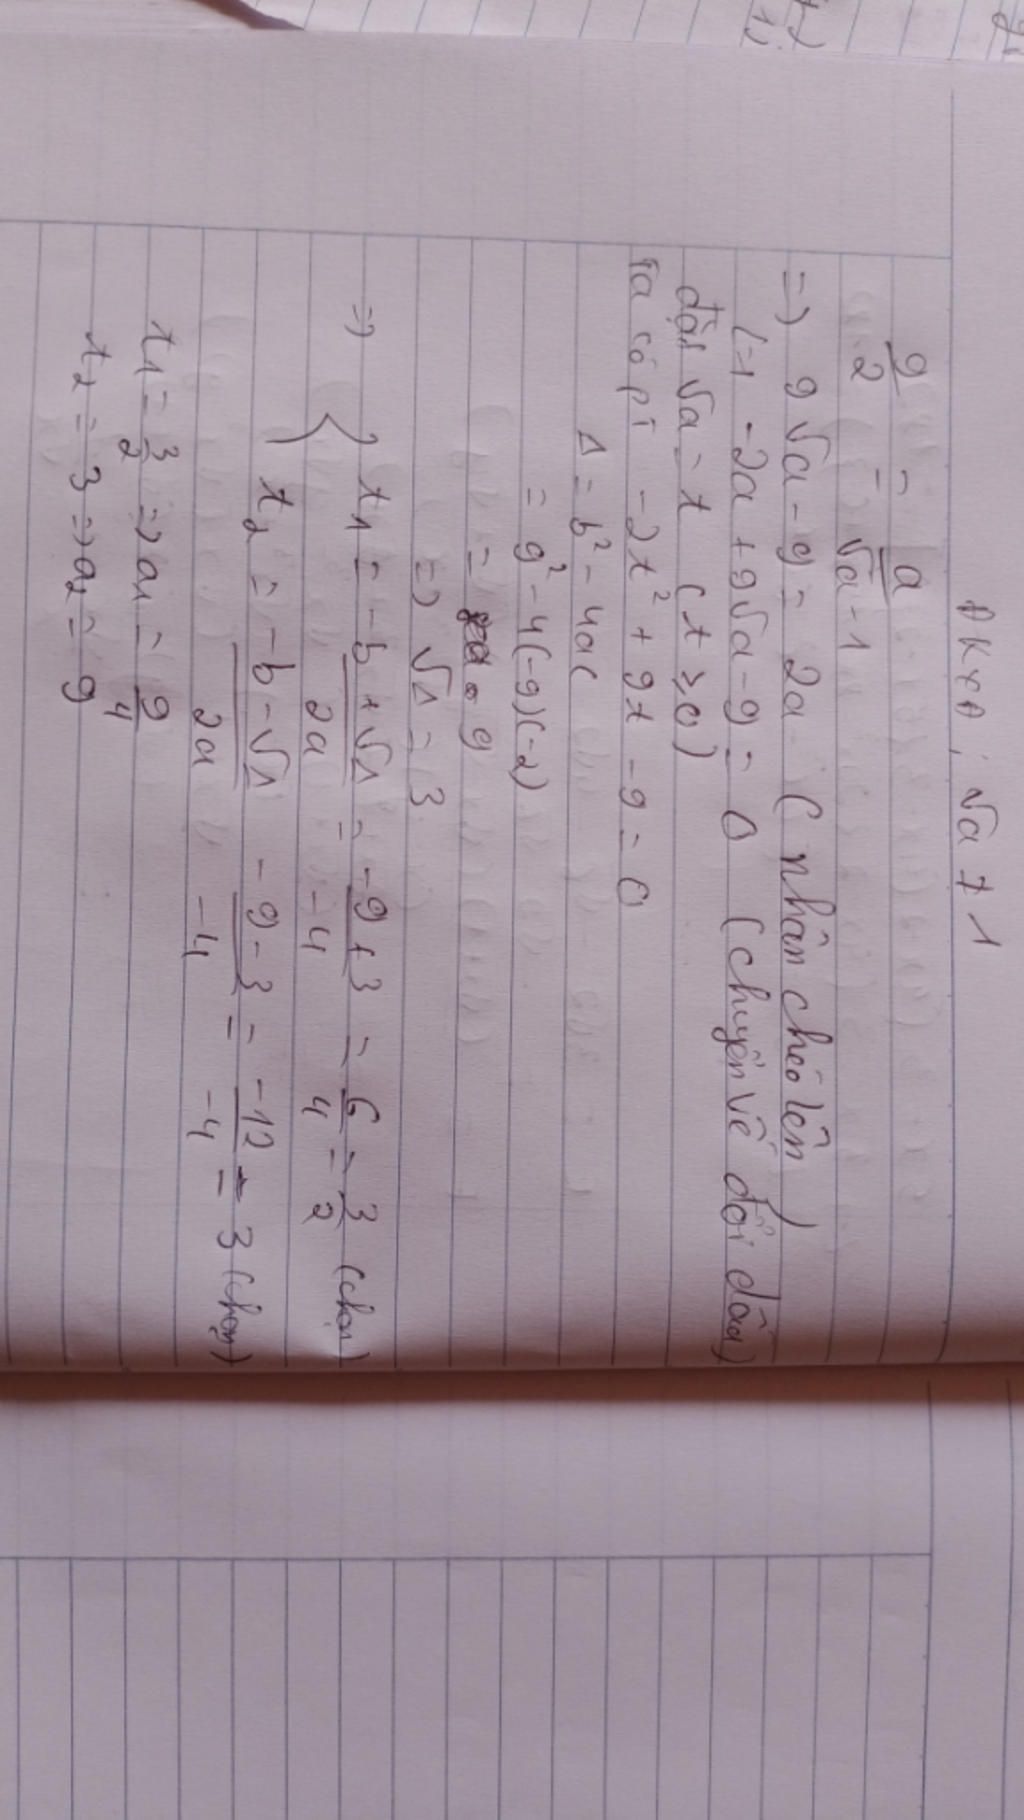 ĐKXĐ: √a ≠ 1
9/2 = a/(√a-1)
=> 9√a - 9 = 2a (nhân chéo lên)
(=) -2a + 9√a - 9 = 0 (chuyển vế đổi dấu)
đặt √a = t (t ≥ 0)
Ta có pt -2t² + 9t - 9 = 0
Δ = b² - 4ac
= 9² - 4(-9)(-2)
= 9
=) √Δ = 3
=> { t₁ = (-b+√Δ)/2a = (-9+3)/-4 = 6/4 = 3/2 (chọn)
t₂ = (-b-√Δ)/2a (-9-3)/-4 = -12/-4 = 3 (chọn)
t₁ = 3/2 => a₁ = 9/4
t₂ = 3 => a₂ = 9